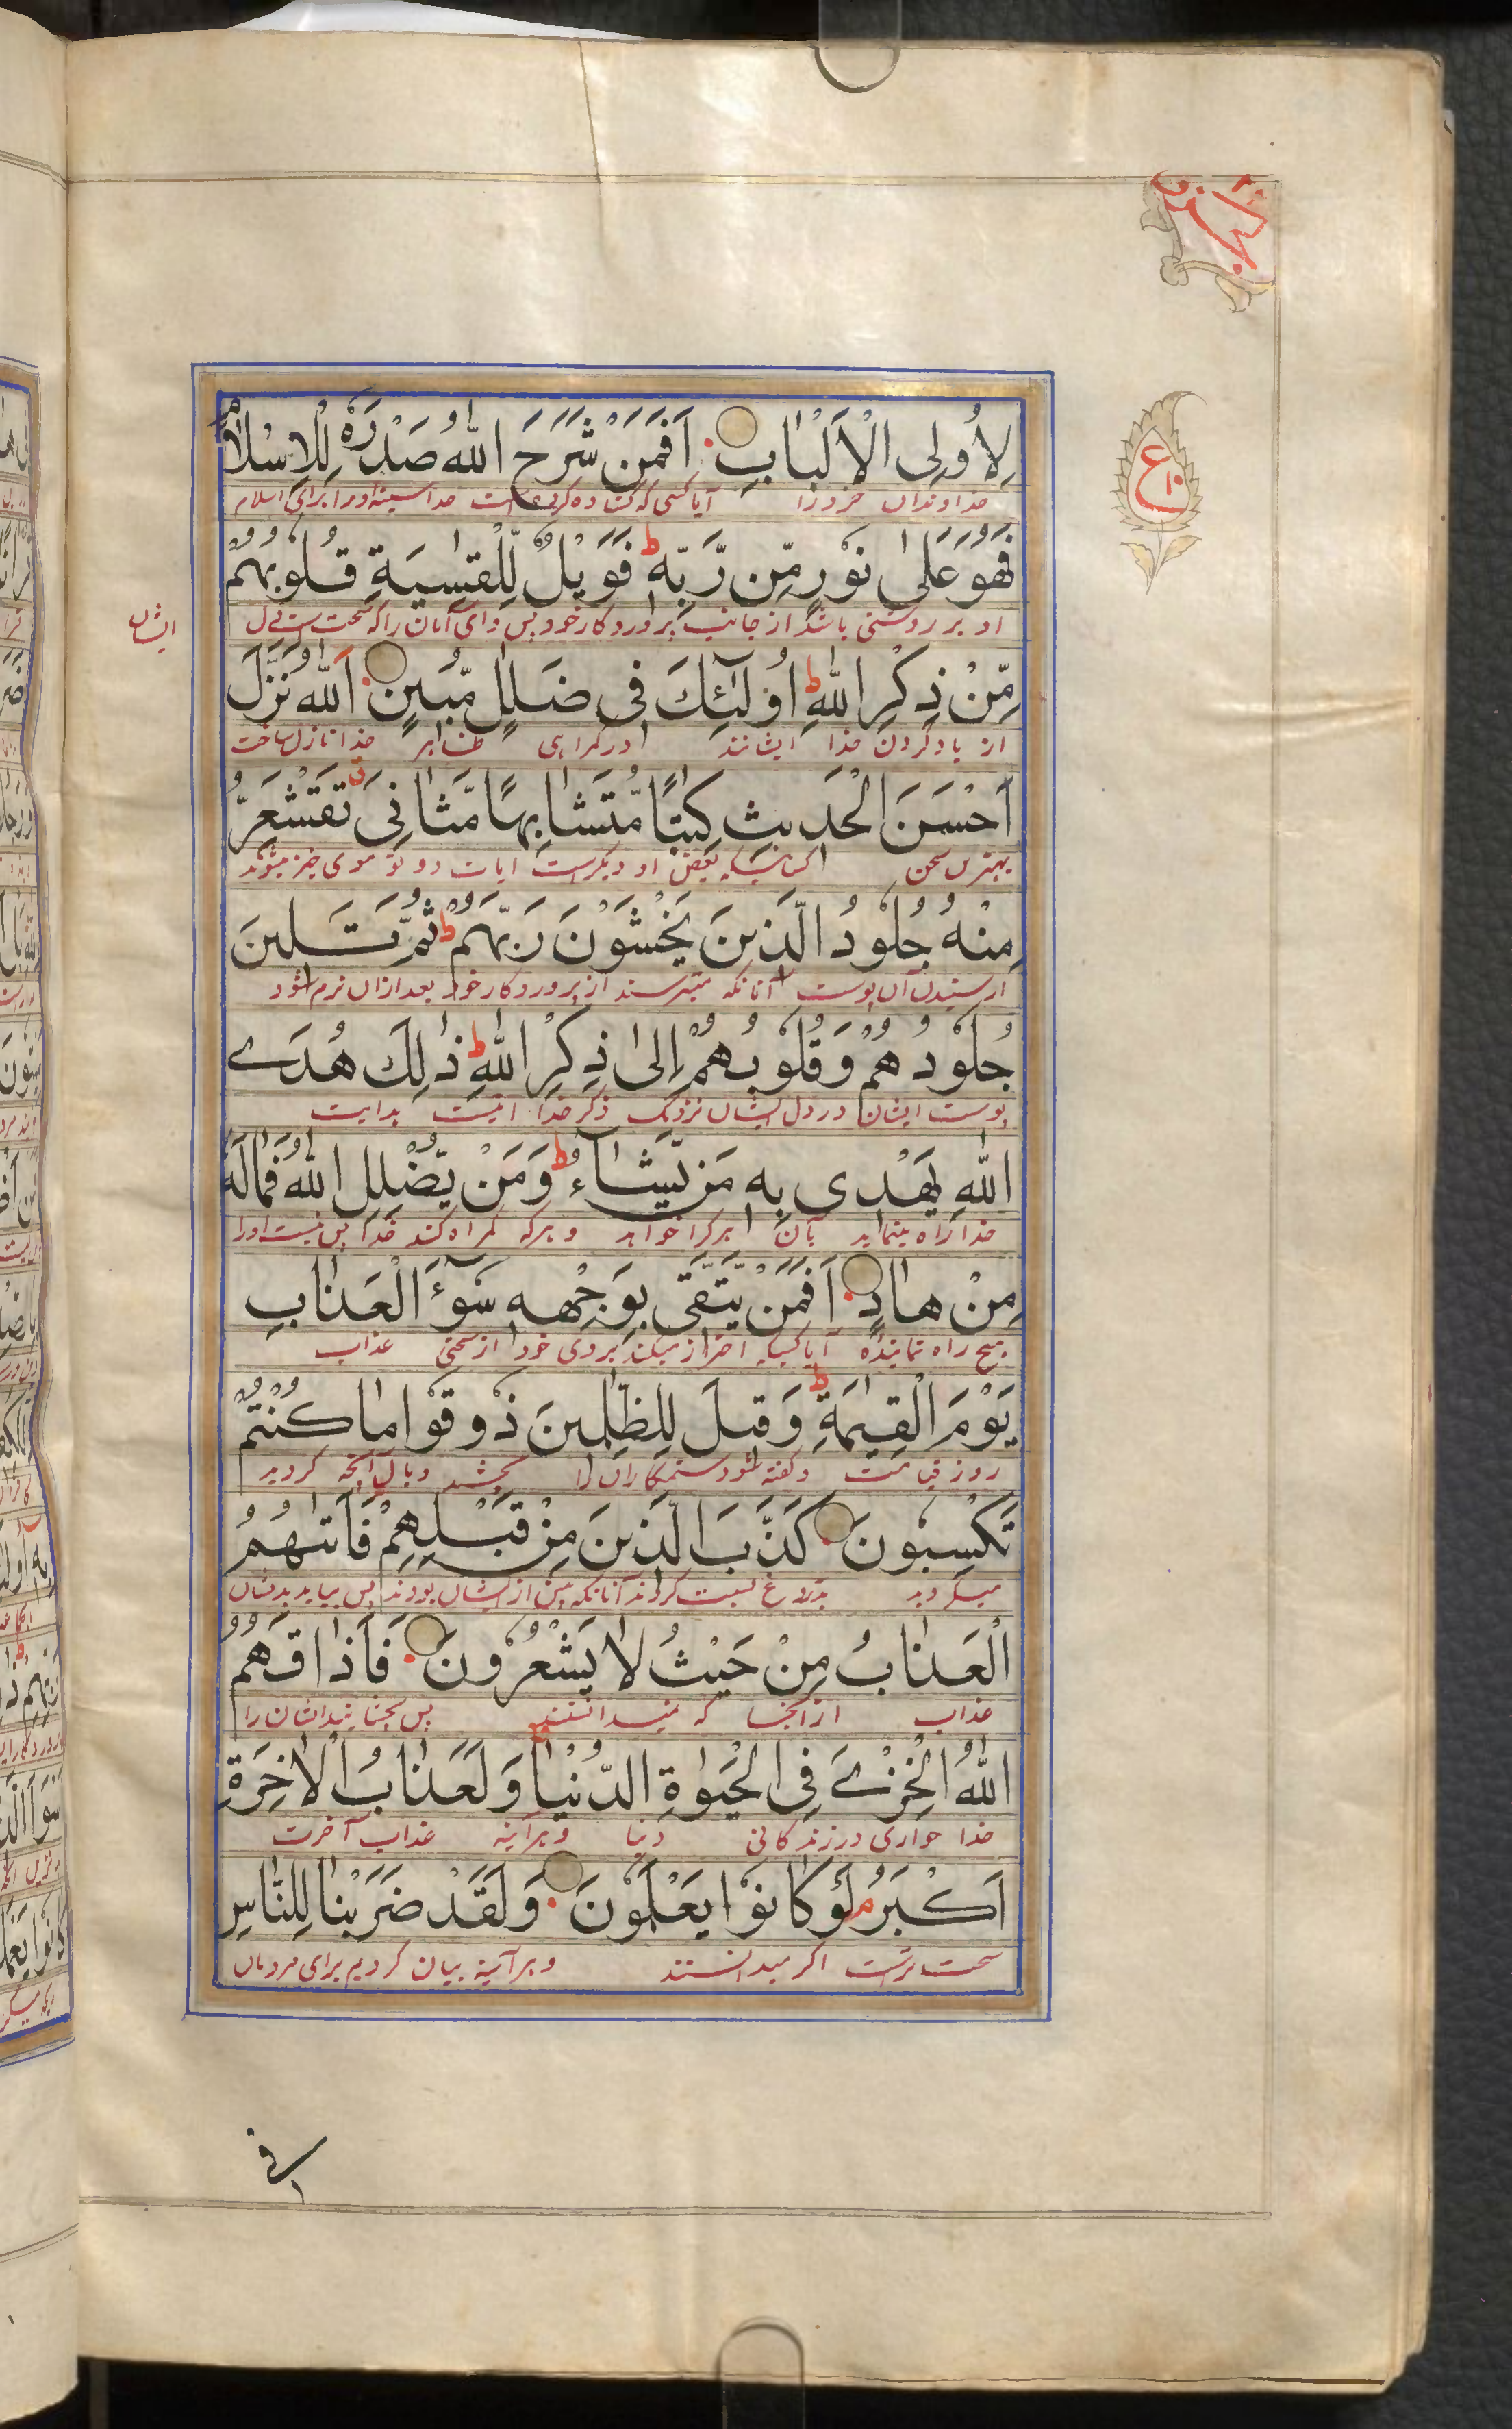 لِاُولِى الْاَلْبَابِ اَفَمَنْ شَرَحَ اللّٰهُ صَدْرَهٗ لِلْاِسْلَامِ
خداوندان خرد را آیا کسی که کشاده کرده است خدا سینه او را برای اسلام
فَهُوَ عَلٰى نُوْرٍ مِّنْ رَّبِّهٖ ط فَوَيْلٌ لِّلْقٰسِيَةِ قُلُوْبُهُمْ
او بر روشنی باشد از جانب پروردکار خود پس وای آنان را که سخت است دل
ایشان
مِّنْ ذِكْرِ اللّٰهِ ط اُولٰٓئِكَ فِى ضَلٰلٍ مُّبِيْنٍ اَللّٰهُ نَزَّلَ
از یاد کردن خدا ایشانند در کمراهی ظاهر خدا نازل ساخت
اَحْسَنَ الْحَدِيْثِ كِتٰبًا مُّتَشَابِهًا مَّثَانِىَ ق تَقْشَعِرُّ
بهترین سخن کتابیکه بعض او دیکرست ایات دو تو موی خیز میشوند
مِنْهُ جُلُوْدُ الَّذِيْنَ يَخْشَوْنَ رَبَّهُمْ ط ثُمَّ تَلِيْنَ
از شنیدن آن پوست آنانکه میترسند از پروردکار خود بعد ازان نرم شود
جُلُوْدُهُمْ وَقُلُوْبُهُمْ اِلٰى ذِكْرِ اللّٰهِ ط ذٰلِكَ هُدَى
پوست ایشان و دل ایشان نزدیک ذکر خدا اینست هدایت
اللّٰهِ يَهْدِى بِهٖ مَنْ يَّشَآءُ ط وَمَنْ يُّضْلِلِ اللّٰهُ فَمَالَهٗ
خدا راه مینماید بآن هر کرا خواهد و هر که کمراه کند خدا پس نیست او را
مِنْ هَادٍ اَفَمَنْ يَّتَّقِى بِوَجْهِهٖ سُوْٓءَ الْعَذَابِ
هیچ راه نماینده آیا کسیکه احتراز میکند بروی خود از سختی عذاب
يَوْمَ الْقِيٰمَةِ ط وَقِيْلَ لِلظّٰلِمِيْنَ ذُوْقُوْا مَا كُنْتُمْ
روز قیامت و کفته شود ستمکاران را بچشید وبال آنچه کردید
تَكْسِبُوْنَ كَذَّبَ الَّذِيْنَ مِنْ قَبْلِهِمْ فَاَتٰىهُمُ
میکردید بدروغ نسبت کردند آنانکه پیش از ایشان بودند پس بیامد بدیشان
الْعَذَابُ مِنْ حَيْثُ لَا يَشْعُرُوْنَ فَاَذَاقَهُمُ
عذاب از آنجا که نمیدانستند پس بچشانید ایشان را
اللّٰهُ الْخِزْىَ فِى الْحَيٰوةِ الدُّنْيَا وَلَعَذَابُ الْاٰخِرَةِ
خدا خواری در زندکانی دنیا و هرآینه عذاب آخرت
اَكْبَرُ م لَوْ كَانُوْا يَعْلَمُوْنَ وَلَقَدْ ضَرَبْنَا لِلنَّاسِ
سخت ترست اکر میدانستند و هرآینه بیان کردیم برای مردمان
فی
ع
١٠